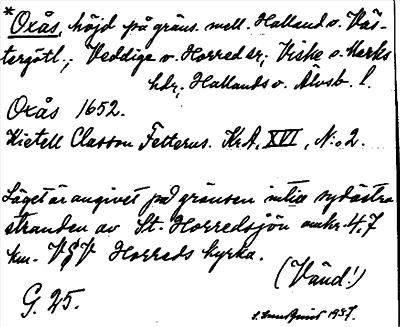 * Oxås, höjd på gräns. mell. Halland o. Väs-
tergötl., Veddige o. Horred sr, Viske o. Marks
hdr, Hallands o. Älvsb. l.
Oxås 1652.
Kietell Classon Felterus. KrA, XVI, N:o 2.
Läget är angivet på gränsen intill sydöstra
stranden av St. Horredsjön omkr. 4,7
km. VSV Horreds kyrka.
(Vänd!)
G. 25.
1937.